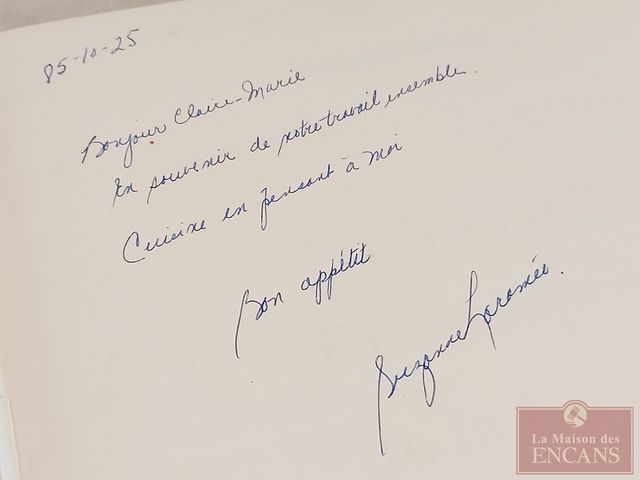 85-10-25
Bonjour Claire-Marie
En souvenir de notre travail ensemble.
Cuisine en pensant à moi
Bon appétit
Suzanne Laramée.
La Maison des
ENCANS